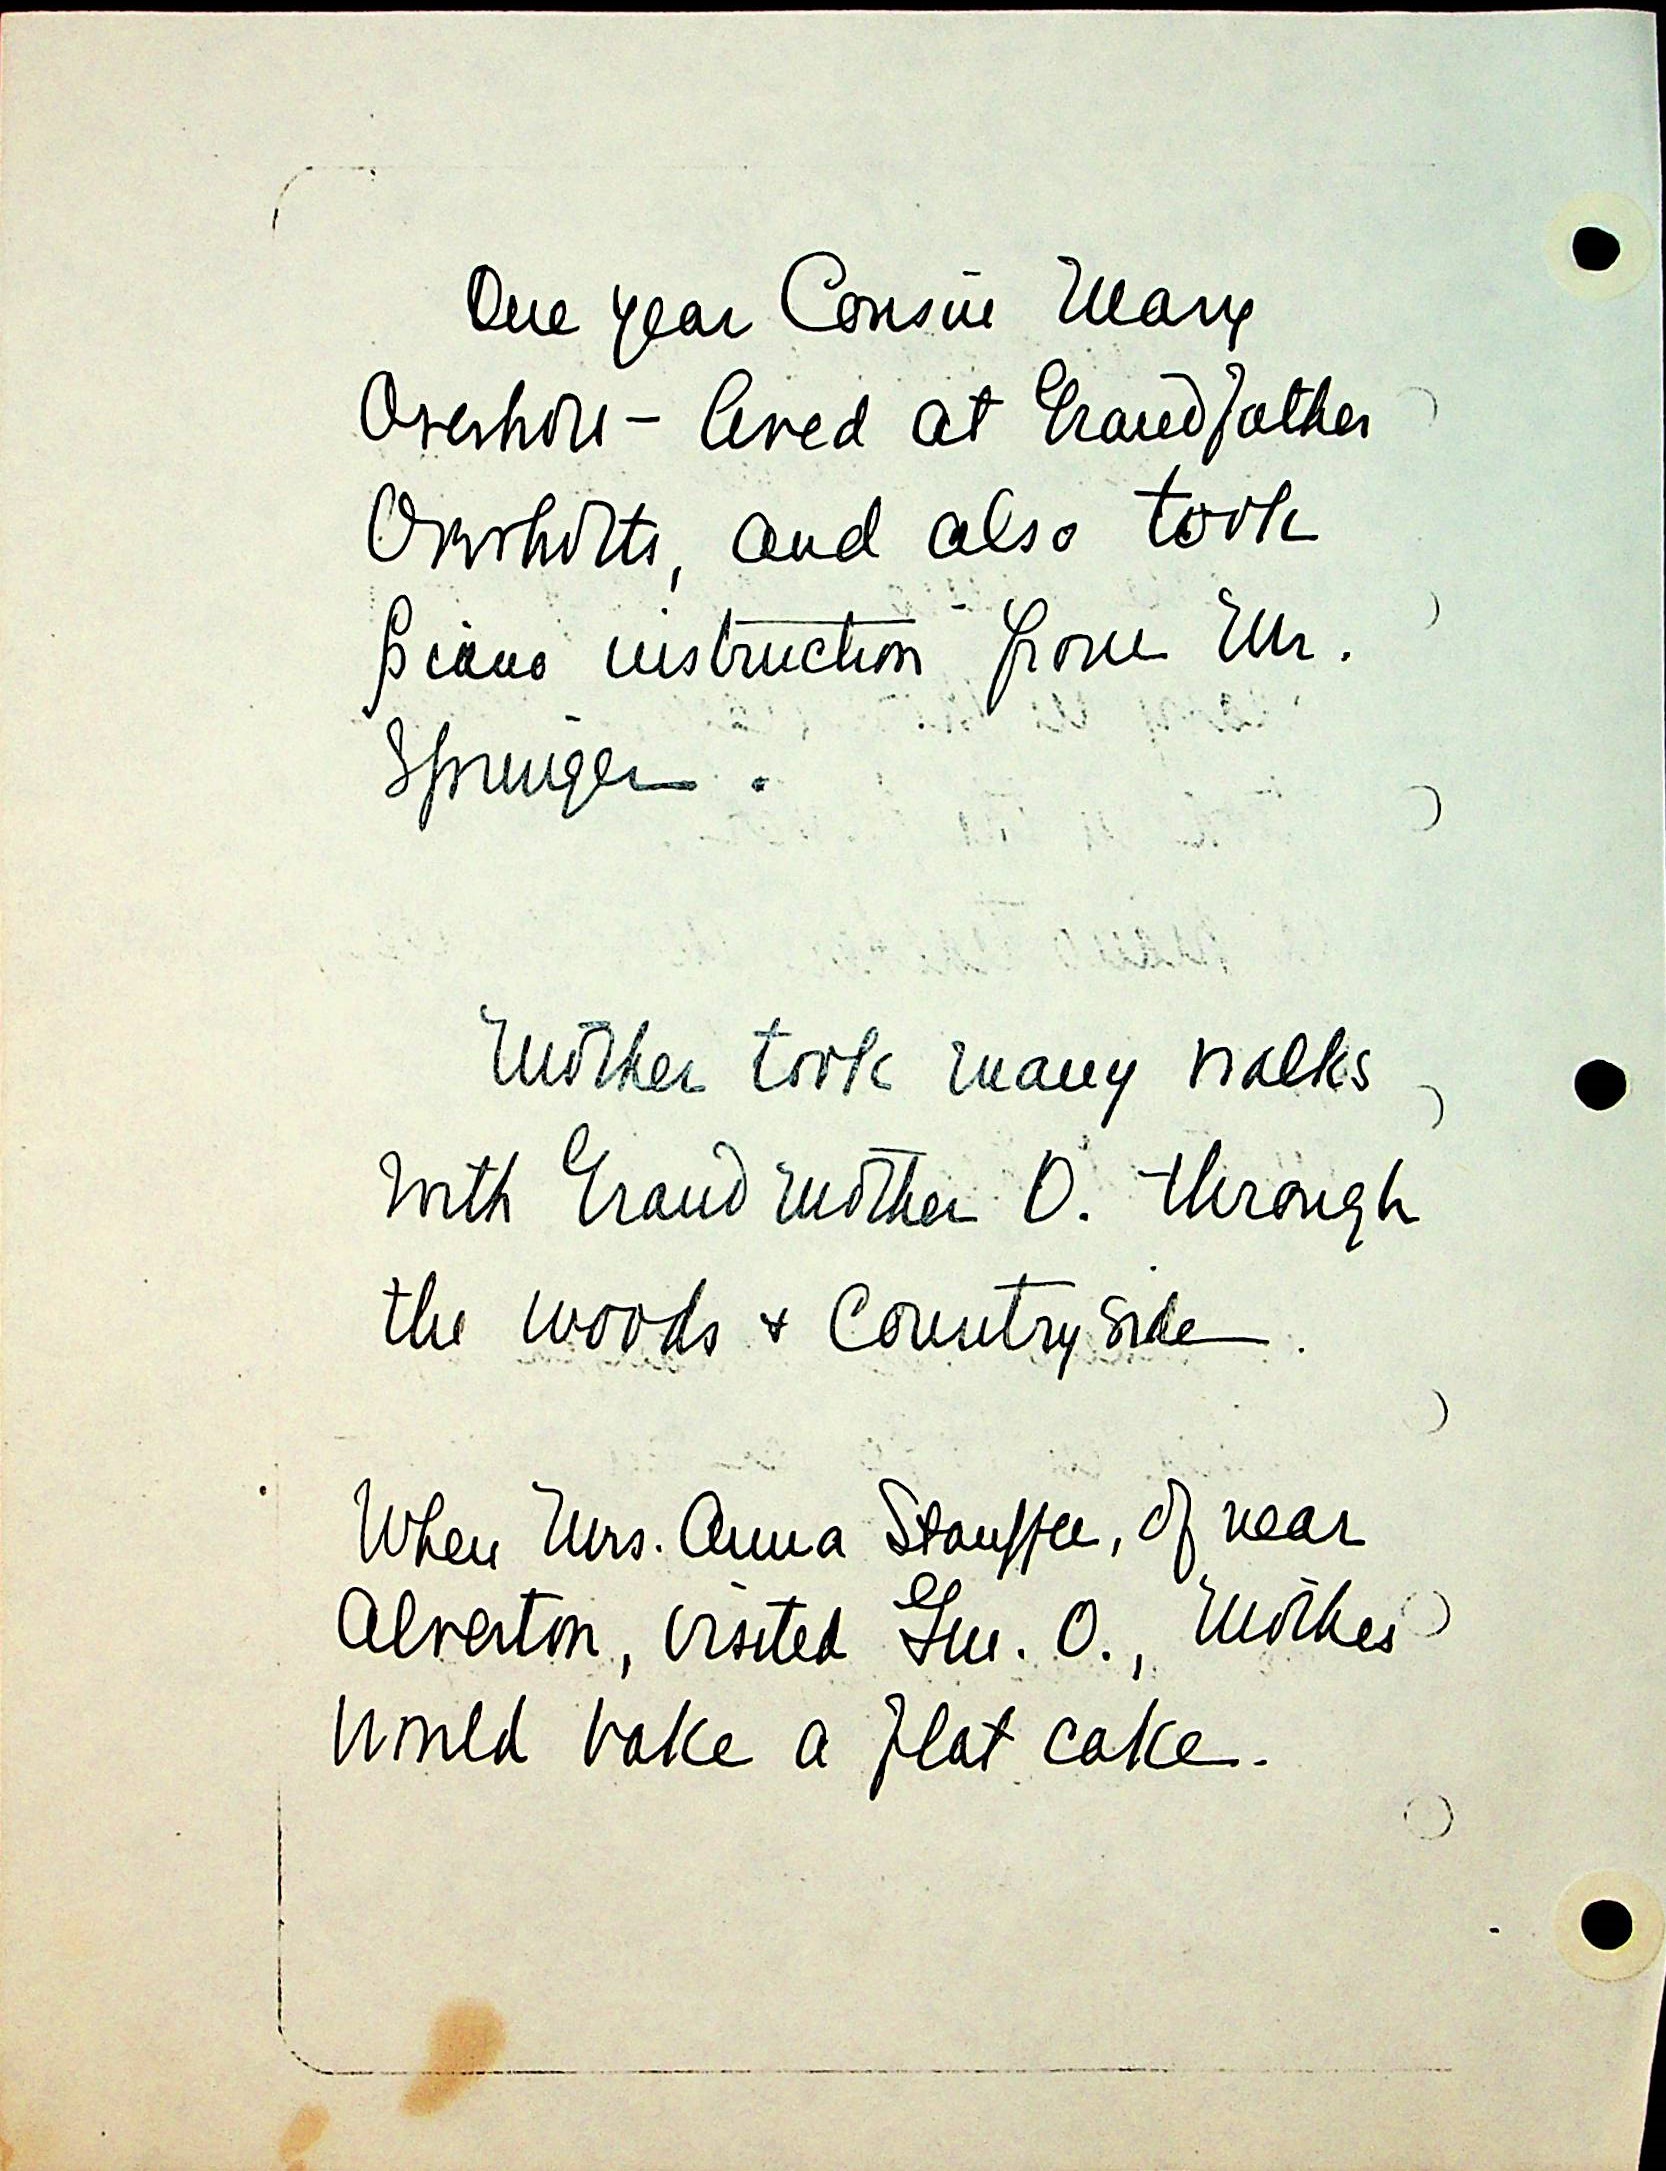 One year Cousin Mary
Overholt - lived at Grandfather
Overholts, and also took
piano instruction from Mr.
Springer.
Mother took many walks
with Grandmother O. through
the woods & Countryside.
When Mrs. Anna Stauffer, of near
Alverton, visited Gm. O., Mother
would bake a flat cake.